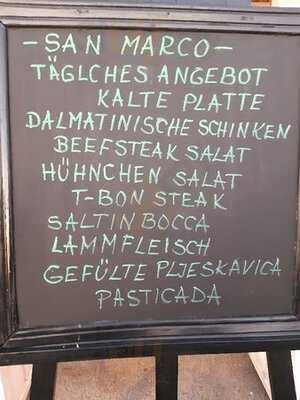 -SAN MARCO-
TÄGLCHES ANGEBOT
KALTE PLATTE
DALMATINISCHE SCHINKEN
BEEFSTEAK SALAT
HÜHNCHEN SALAT
T-BON STEAK
SALTIN BOCCA
LAMMFLEISCH
GEFÜLTE PLJESKAVICA
PASTICADA